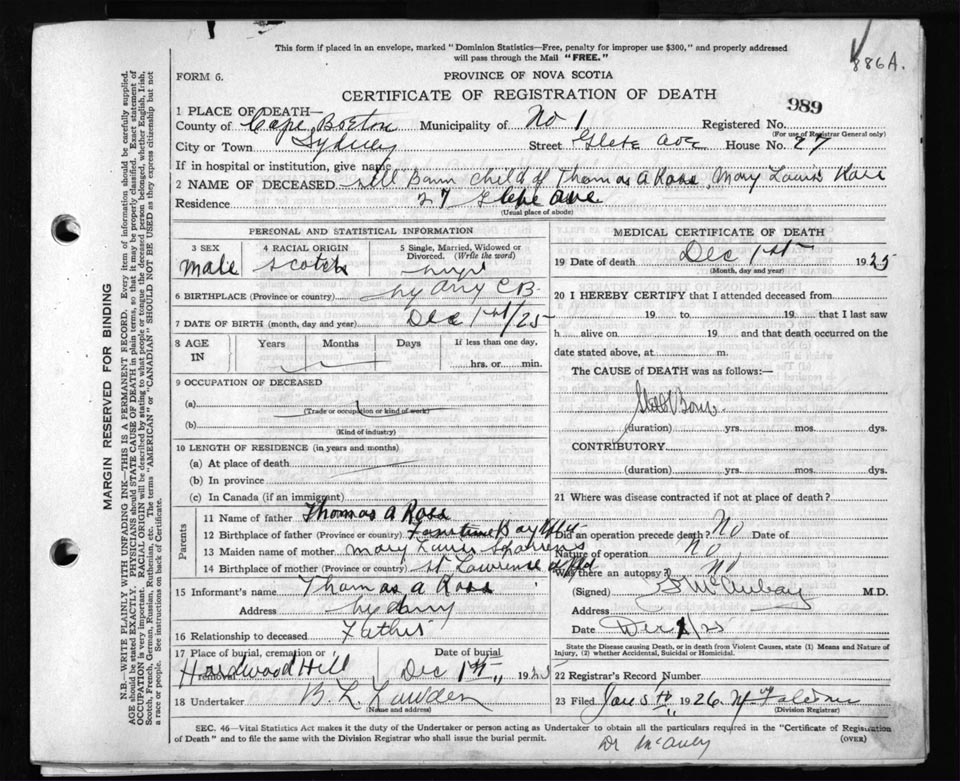 This form if placed in an envelope, marked "Dominion Statistics—Free, penalty for improper use $300," and properly addressed
will pass through the Mail "FREE."
886A.
FORM 6.
PROVINCE OF NOVA SCOTIA
CERTIFICATE OF REGISTRATION OF DEATH
989
1 PLACE OF DEATH—
County of Cape Breton Municipality of No 1 Registered No.
(For use of Registrar General only)
City or Town Sydney Street Glebe Ave House No. 27
If in hospital or institution, give name
2 NAME OF DECEASED Still Born child of Thomas A Ross, Mary Louis
Residence 27 Glebe Ave
(Usual place of abode)
PERSONAL AND STATISTICAL INFORMATION
3 SEX 4 RACIAL ORIGIN 5 Single, Married, Widowed or
Divorced. (Write the word)
Male Scotch
6 BIRTHPLACE (Province or country) Sydney C B.
7 DATE OF BIRTH (month, day and year) Dec 1st/25
8 AGE IN Years Months Days If less than one day,
hrs. or min.
9 OCCUPATION OF DECEASED
(a)
(Trade or occupation or kind of work)
(b)
(Kind of industry)
10 LENGTH OF RESIDENCE (in years and months)
(a) At place of death
(b) In province
(c) In Canada (if an immigrant)
Parents
11 Name of father Thomas A Ross
12 Birthplace of father (Province or country) Bay
13 Maiden name of mother Mary Louis
14 Birthplace of mother (Province or country) St Lawrence Nfld
15 Informant's name Thomas A Ross
Address Sydney
16 Relationship to deceased Father
17 Place of burial, cremation or removal Date of burial
Hardwood Hill Dec 1st 1925
18 Undertaker B. L.
(Name and address)
MEDICAL CERTIFICATE OF DEATH
19 Date of death Dec 1st 1925
(Month, day and year)
20 I HEREBY CERTIFY that I attended deceased from
19 to 19 that I last saw
h alive on 19 and that death occurred on the
date stated above, at m.
The CAUSE OF DEATH was as follows:
Still Born
(duration) yrs. mos. dys.
CONTRIBUTORY
(duration) yrs. mos. dys.
21 Where was disease contracted if not at place of death?
Did an operation precede death? No Date of
Nature of operation No
Was there an autopsy? No
(Signed) M.D.
Address
Date Dec 1/25
State the Disease causing Death, or in death from Violent Causes, state (1) Means and Nature of
Injury, (2) whether Accidental, Suicidal or Homicidal.
22 Registrar's Record Number
23 Filed Jan 5th 1926
(Division Registrar)
SEC. 46—Vital Statistics Act makes it the duty of the Undertaker or person acting as Undertaker to obtain all the particulars required in the "Certificate of Registration
of Death" and to file the same with the Division Registrar who shall issue the burial permit.
(OVER)
Dr
MARGIN RESERVED FOR BINDING
N.B.—WRITE PLAINLY WITH UNFADING INK—THIS IS A PERMANENT RECORD. Every item of information should be carefully supplied.
AGE should be stated EXACTLY. PHYSICIANS should STATE CAUSE OF DEATH in plain terms, so that it may be properly classified. Exact statement of
OCCUPATION is very important. RACIAL ORIGIN will be described by stating to what people or tongue the deceased person belonged, whether English, Irish,
Scotch, French, German, Russian, Ruthenian, etc. The terms "AMERICAN" or "CANADIAN" SHOULD NOT BE USED as they express citizenship but not
a race or people. See instructions on back of Certificate.